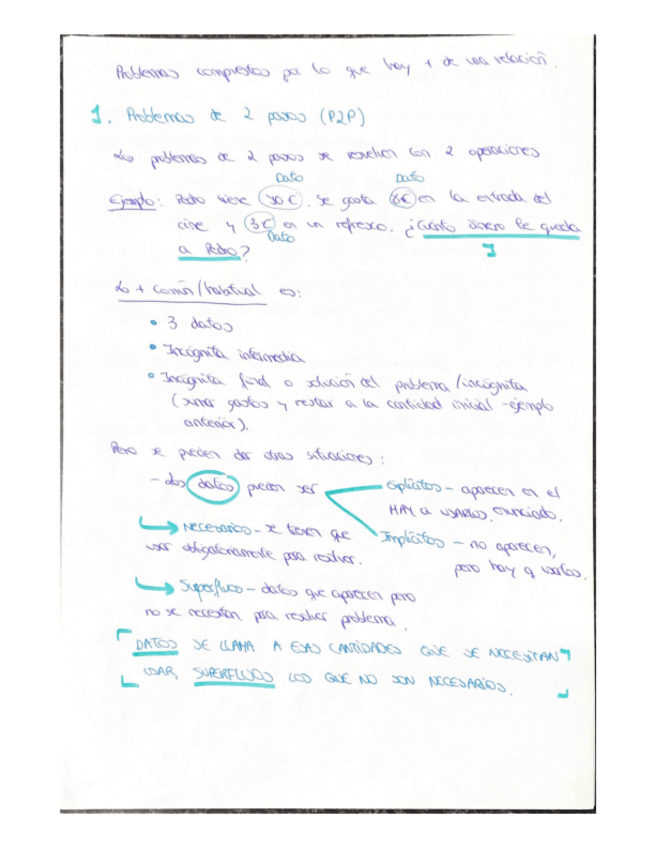 Problemas compuestos por lo que hay + de una relación.
1. Problemas de 2 pasos (P2P)
Los problemas de 2 pasos se resuelven con 2 operaciones
Dato Dato
Ejemplo: Pedro tiene 30€. Se gasta 6€ en la entrada del
cine y 3€ en un refresco. ¿Cuánto dinero le queda
Dato
a Pedro? 1
Lo + común/habitual es:
• 3 datos
• Incógnita intermedia
• Incógnita final o solución del problema/incógnita
(sumar gastos y restar a la cantidad inicial - ejemplo
anterior).
Pero se pueden dar otras situaciones:
- Los datos pueden ser
Explícitos - aparecen en el
HAY q USARLOS. enunciado.
Implícitos - no aparecen,
pero hay q usarlos.
Necesarios - se tienen que
usar obligatoriamente para resolver.
Superfluo - datos que aparecen pero
no se necesitan para resolver problema.
DATOS SE LLAMA A ESAS CANTIDADES QUE SE NECESITAN
USAR, SUPERFLUOS LOS QUE NO SON NECESARIOS.